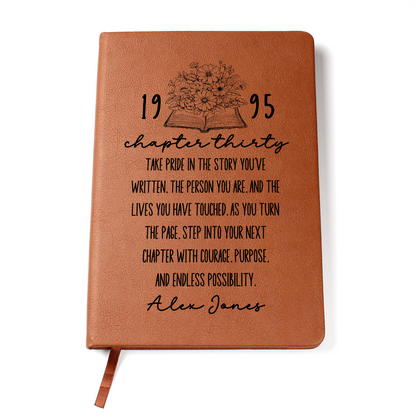 19 95
chapter thirty
TAKE PRIDE IN THE STORY YOU'VE
WRITTEN, THE PERSON YOU ARE, AND THE
LIVES YOU HAVE TOUCHED. AS YOU TURN
THE PAGE, STEP INTO YOUR NEXT
CHAPTER WITH COURAGE, PURPOSE,
AND ENDLESS POSSIBILITY.
Alex Jones